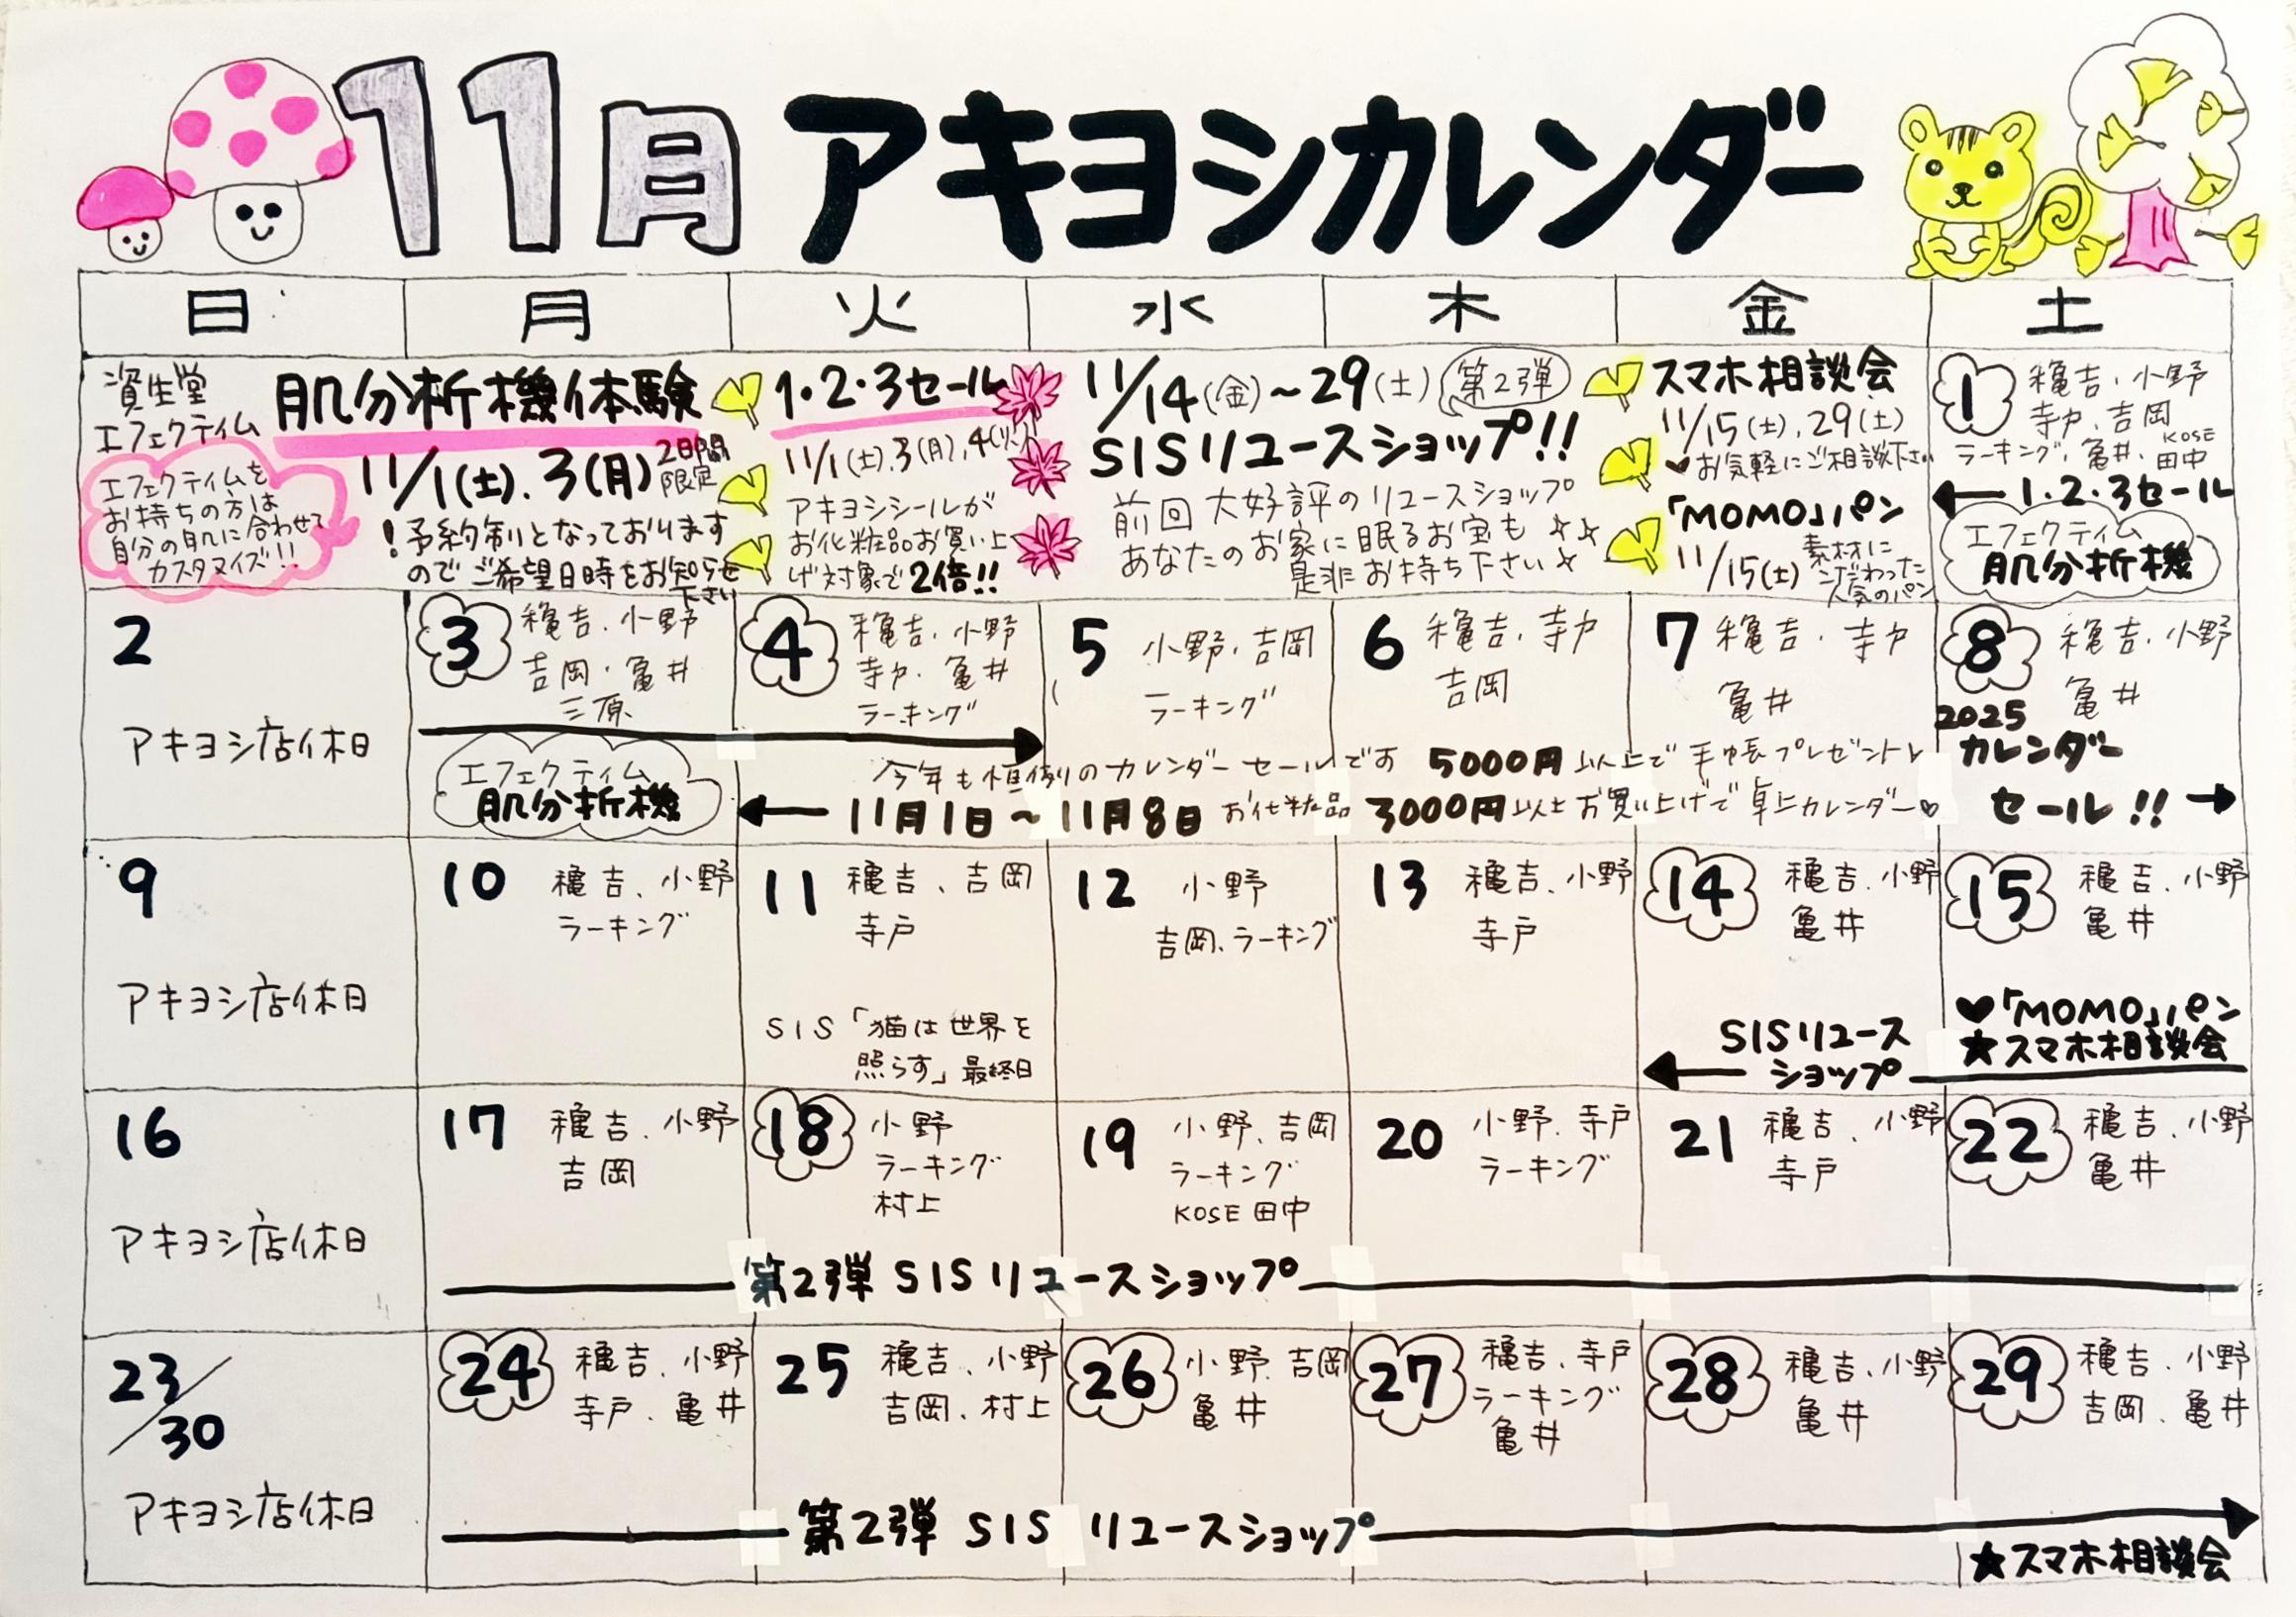 11月 アキヨシカレンダー
日 月 火 水 木 金 土
資生堂
エフェクティム
肌分析機体験
11/1(土).3(月) 2日間限定
！予約制となっております
のでご希望日時をお知らせ
下さい
エフェクティムを
お持ちの方は
自分の肌に合わせて
カスタマイズ!!
1・2・3セール
11/1(土).3(月),4(火)
アキヨシシールが
お化粧品お買い上
げ対象で2倍!!
11/14(金)~29(土) 第2弾
SISリユースショップ!!
前回大好評のリユースショップ
あなたのお家に眠るお宝も
是非お持ち下さい
スマホ相談会
11/15(土),29(土)
お気軽にご相談下さい
「MOMO」パン
11/15(土)
素材に
こだわった
人気のパン
1 穐吉・小野
寺戸.吉岡
ラーキング.亀井.KOSE田中
1・2・3セール
エフェクティム
肌分析機
2
アキヨシ店休日
3 穐吉.小野
吉岡・亀井
三原
エフェクティム
肌分析機
4 穐吉.小野
寺戸.亀井
ラーキング
5 小野.吉岡
ラーキング
6 穐吉.寺戸
吉岡
7 穐吉.寺戸
亀井
8 穐吉.小野
亀井
2025
カレンダー
セール!!
今年も恒例のカレンダーセールです 5000円以上で手帳プレゼント
11月1日~11月8日 お化粧品 3000円以上お買い上げで卓上カレンダー♡
9
アキヨシ店休日
10 穐吉.小野
ラーキング
11 穐吉、吉岡
寺戸
SIS「猫は世界を
照らす」最終日
12 小野
吉岡.ラーキング
13 穐吉.小野
寺戸
14 穐吉.小野
亀井
SISリユース
ショップ
15 穐吉.小野
亀井
♥「MOMO」パン
★スマホ相談会
16
アキヨシ店休日
17 穐吉.小野
吉岡
18 小野
ラーキング
村上
19 小野、吉岡
ラーキング
KOSE田中
20 小野.寺戸
ラーキング
21 穐吉.小野
寺戸
22 穐吉.小野
亀井
第2弾 SISリユースショップ
23/30
アキヨシ店休日
24 穐吉.小野
寺戸.亀井
25 穐吉.小野
吉岡.村上
26 小野.吉岡
亀井
27 穐吉.寺戸
ラーキング
亀井
28 穐吉.小野
亀井
29 穐吉.小野
吉岡.亀井
第2弾 SIS リユースショップ
★スマホ相談会